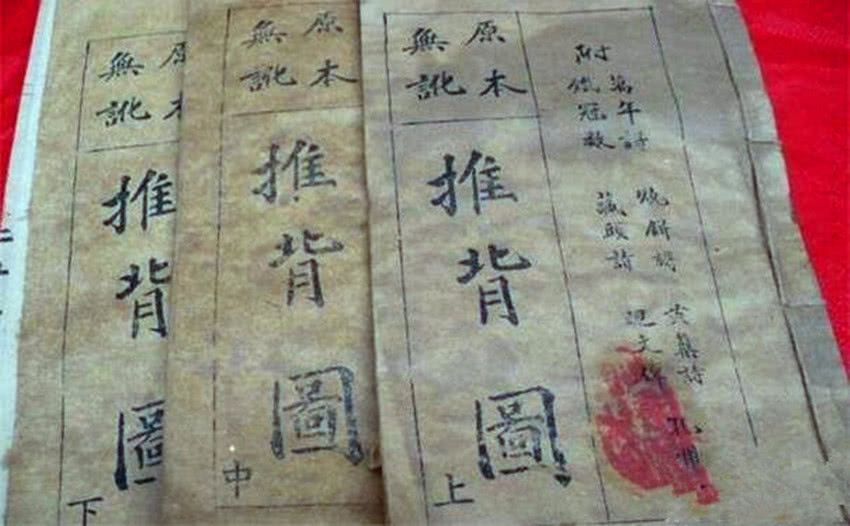 附
萬年詩 燒餅謌 黄蘗詩
鐵冠數 藏頭詩
原本
無訛
推背圖
上
原本
無訛
推背圖
中
原本
無訛
推背圖
下